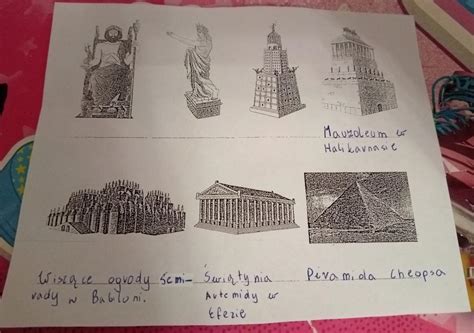 Mauzoleum w
Halikarnasie
Wiszące ogrody Semi-
rady w Babiloni.
Świątynia
Artemidy w
Efezie
Piramida cheopsa